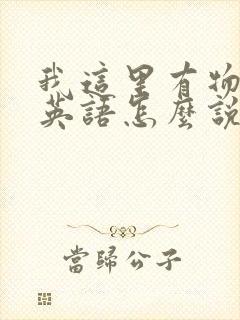 我這里有物
英語怎麼說
當歸公子